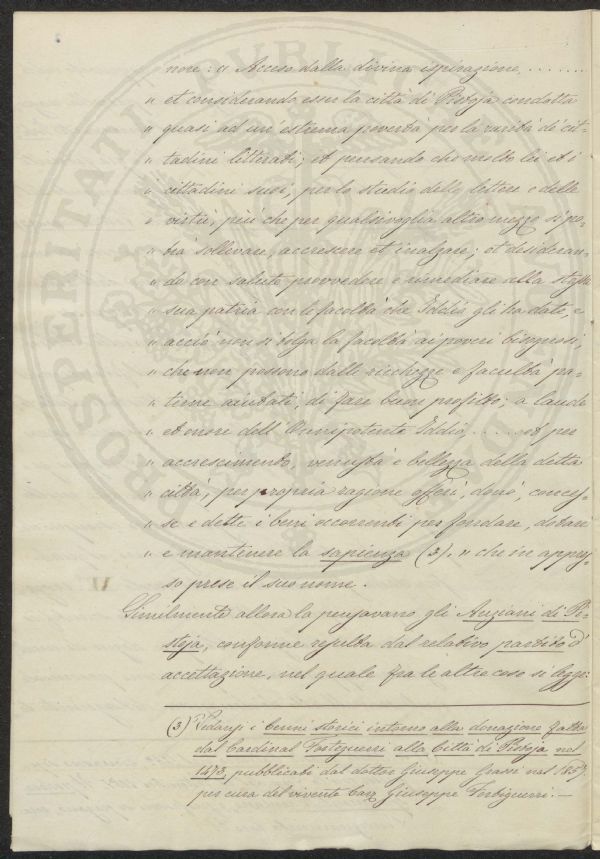 nore: « Acceso dalla divina ispirazione ........
« et considerando esser la città di Pistoja condotta
« quasi ad un'estrema povertà per la rarità de' cit-
« tadini litterati; et pensando che molto lei et i
« cittadini suoi, per lo studio delle lettere e delle
« virtù, più che per qualsivoglia altro mezzo si po-
« trà sollevare, accrescere et inalzare; et desideran-
« do con salute provvedere e rimediare alla stessa
« sua patria con le facoltà che Iddio gli ha date, e
« acciò non si tolga la facoltà ai poveri bisognosi,
« che non possono dalle ricchezze e facultà pa-
« terne aiutati, di fare buon profitto; a laude
« et onore dell'Onnipotente Iddio, ...... et per
« accrescimento, venustà e bellezza della detta
« città, per propria ragione offerì, donò, conces-
« se e dette i beni occorrenti per fondare, dotare
« e mantenere la sapienza (3), » che in appres-
so prese il suo nome.
Similmente allora la pensavano gli Anziani di Pi-
stoja, conforme resulta dal relativo partito d'
accettazione, nel quale fra le altre cose si legge:
(3) Vedansi i cenni storici intorno alla donazione fatta
dal Cardinal Forteguerri alla Città di Pistoja nel
1473, pubblicati dal dottor Giuseppe Grassi nel 1857.
per cura del vivente Cav. Giuseppe Forteguerri. —
PROSPERITATI